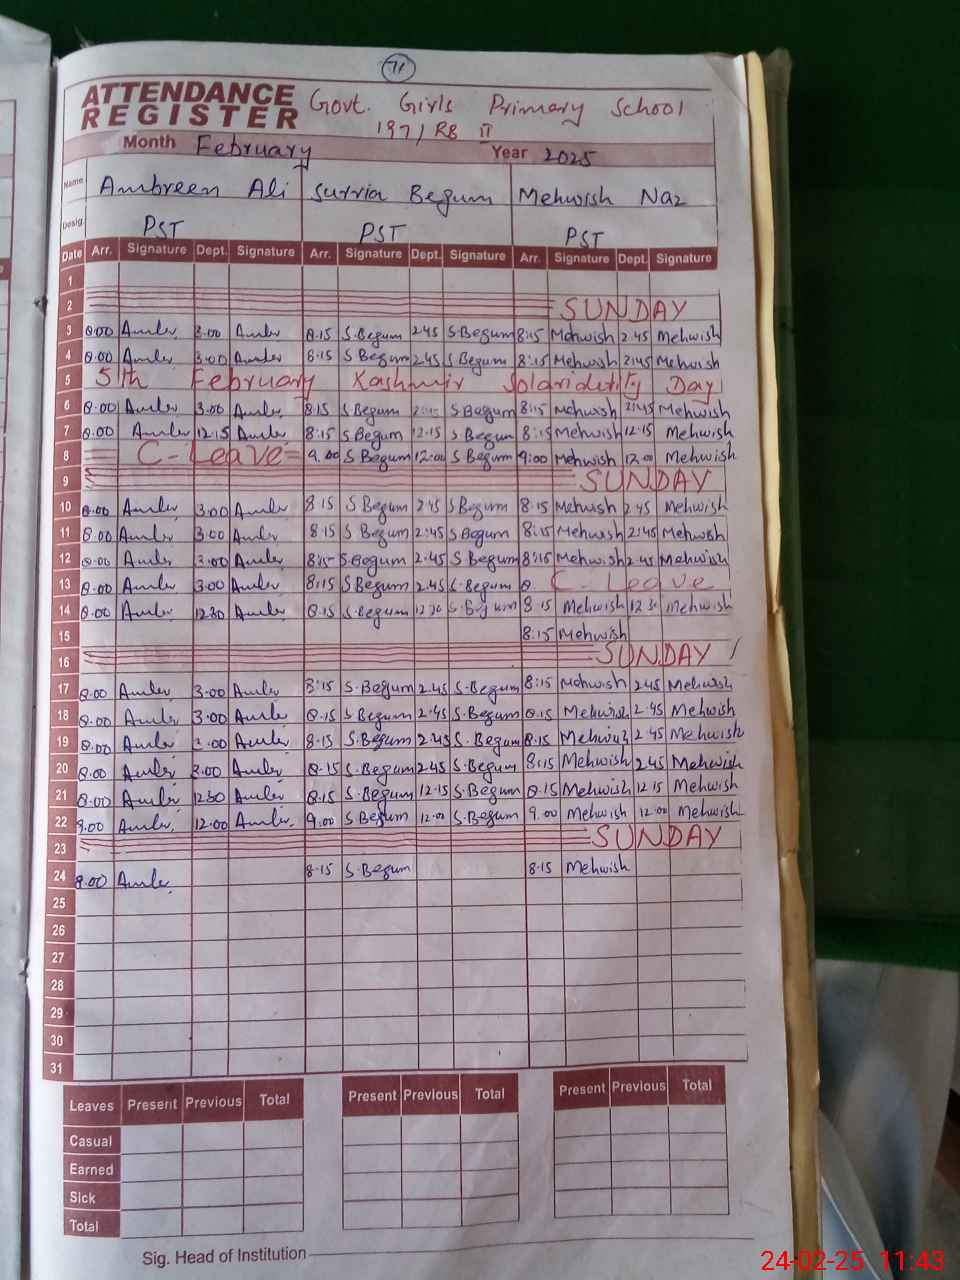 71
ATTENDANCE REGISTER Govt. Girls Primary School
197/RB II
Month February Year 2025
Name Ambreen Ali Surria Begum Mehwish Naz
Desig. PST PST PST
Date Arr. Signature Dept. Signature Arr. Signature Dept. Signature Arr. Signature Dept. Signature
1
2 SUNDAY
3 8:00 3:00 8:15 S.Begum 2:45 S.Begum 8:15 Mehwish 2:45 Mehwish
4 8:00 3:00 8:15 S Begum 2:45 S Begum 8:15 Mehwish 2:45 Mehwish
5 5th February Kashmir Solaridutity Day
6 8:00 3:00 8:15 S Begum S Begum 8:15 Mehwish 2:45 Mehwish
7 8:00 12:15 8:15 S Begum 12:15 S Begum 8:15 Mehwish 12:15 Mehwish
8 C-Leave 9:00 S Begum 12:00 S Begum 9:00 Mehwish 12:00 Mehwish
9 SUNDAY
10 8:00 3:00 8:15 S Begum 2:45 S Begum 8:15 Mehwish 2:45 Mehwish
11 8:00 3:00 8:15 S Begum 2:45 S Begum 8:15 Mehwish 2:45 Mehwish
12 8:00 3:00 8:15 S Begum 2:45 S Begum 8:15 Mehwish 2:45 Mehwish
13 8:00 3:00 8:15 S Begum 2:45 S-Begum C-Leave
14 8:00 12:30 8:15 S.Begum 12:30 S.Begum 8:15 Mehwish 12:30 Mehwish
15 8:15 Mehwish
16 SUNDAY
17 8:00 3:00 8:15 S.Begum 2:45 S.Begum 8:15 Mehwish 2:45 Mehwish
18 8:00 3:00 8:15 S Begum 2:45 S.Begum 8:15 Mehwish 2:45 Mehwish
19 8:00 3:00 8:15 S.Begum 2:45 S.Begum 8:15 Mehwish 2:45 Mehwish
20 8:00 3:00 8:15 S.Begum 2:45 S.Begum 8:15 Mehwish 2:45 Mehwish
21 8:00 12:30 8:15 S.Begum 12:15 S.Begum 8:15 Mehwish 12:15 Mehwish
22 9:00 12:00 9:00 S Begum 12:00 S.Begum 9:00 Mehwish 12:00 Mehwish
23 SUNDAY
24 8:00 8:15 S.Begum 8:15 Mehwish
25
26
27
28
29
30
31
Leaves Present Previous Total Present Previous Total Present Previous Total
Casual
Earned
Sick
Total
Sig. Head of Institution
24-02-25 11:43